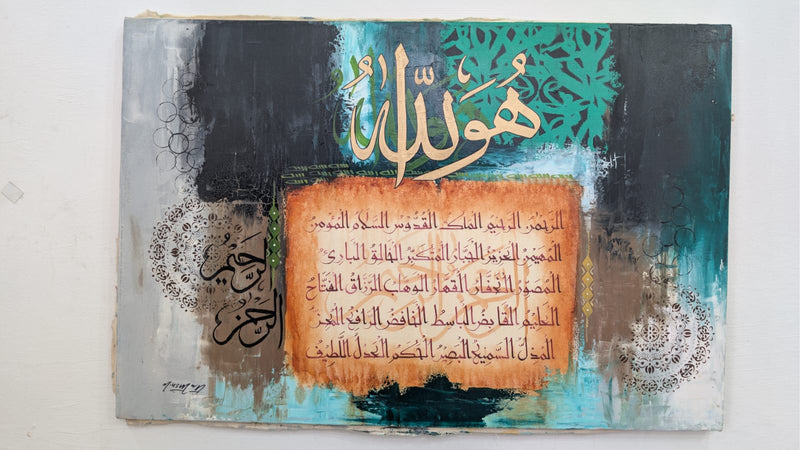 هُوَ اللّٰه
الرحمن الرحيم الملك القدوس السلام المؤمن
المهيمن العزيز الجبار المتكبر الخالق البارئ
المصور الغفار القهار الوهاب الرزاق الفتاح
العليم القابض الباسط الخافض الرافع المعز
المذل السميع البصير الحكم العدل اللطيف
الرحيم
الرحمن